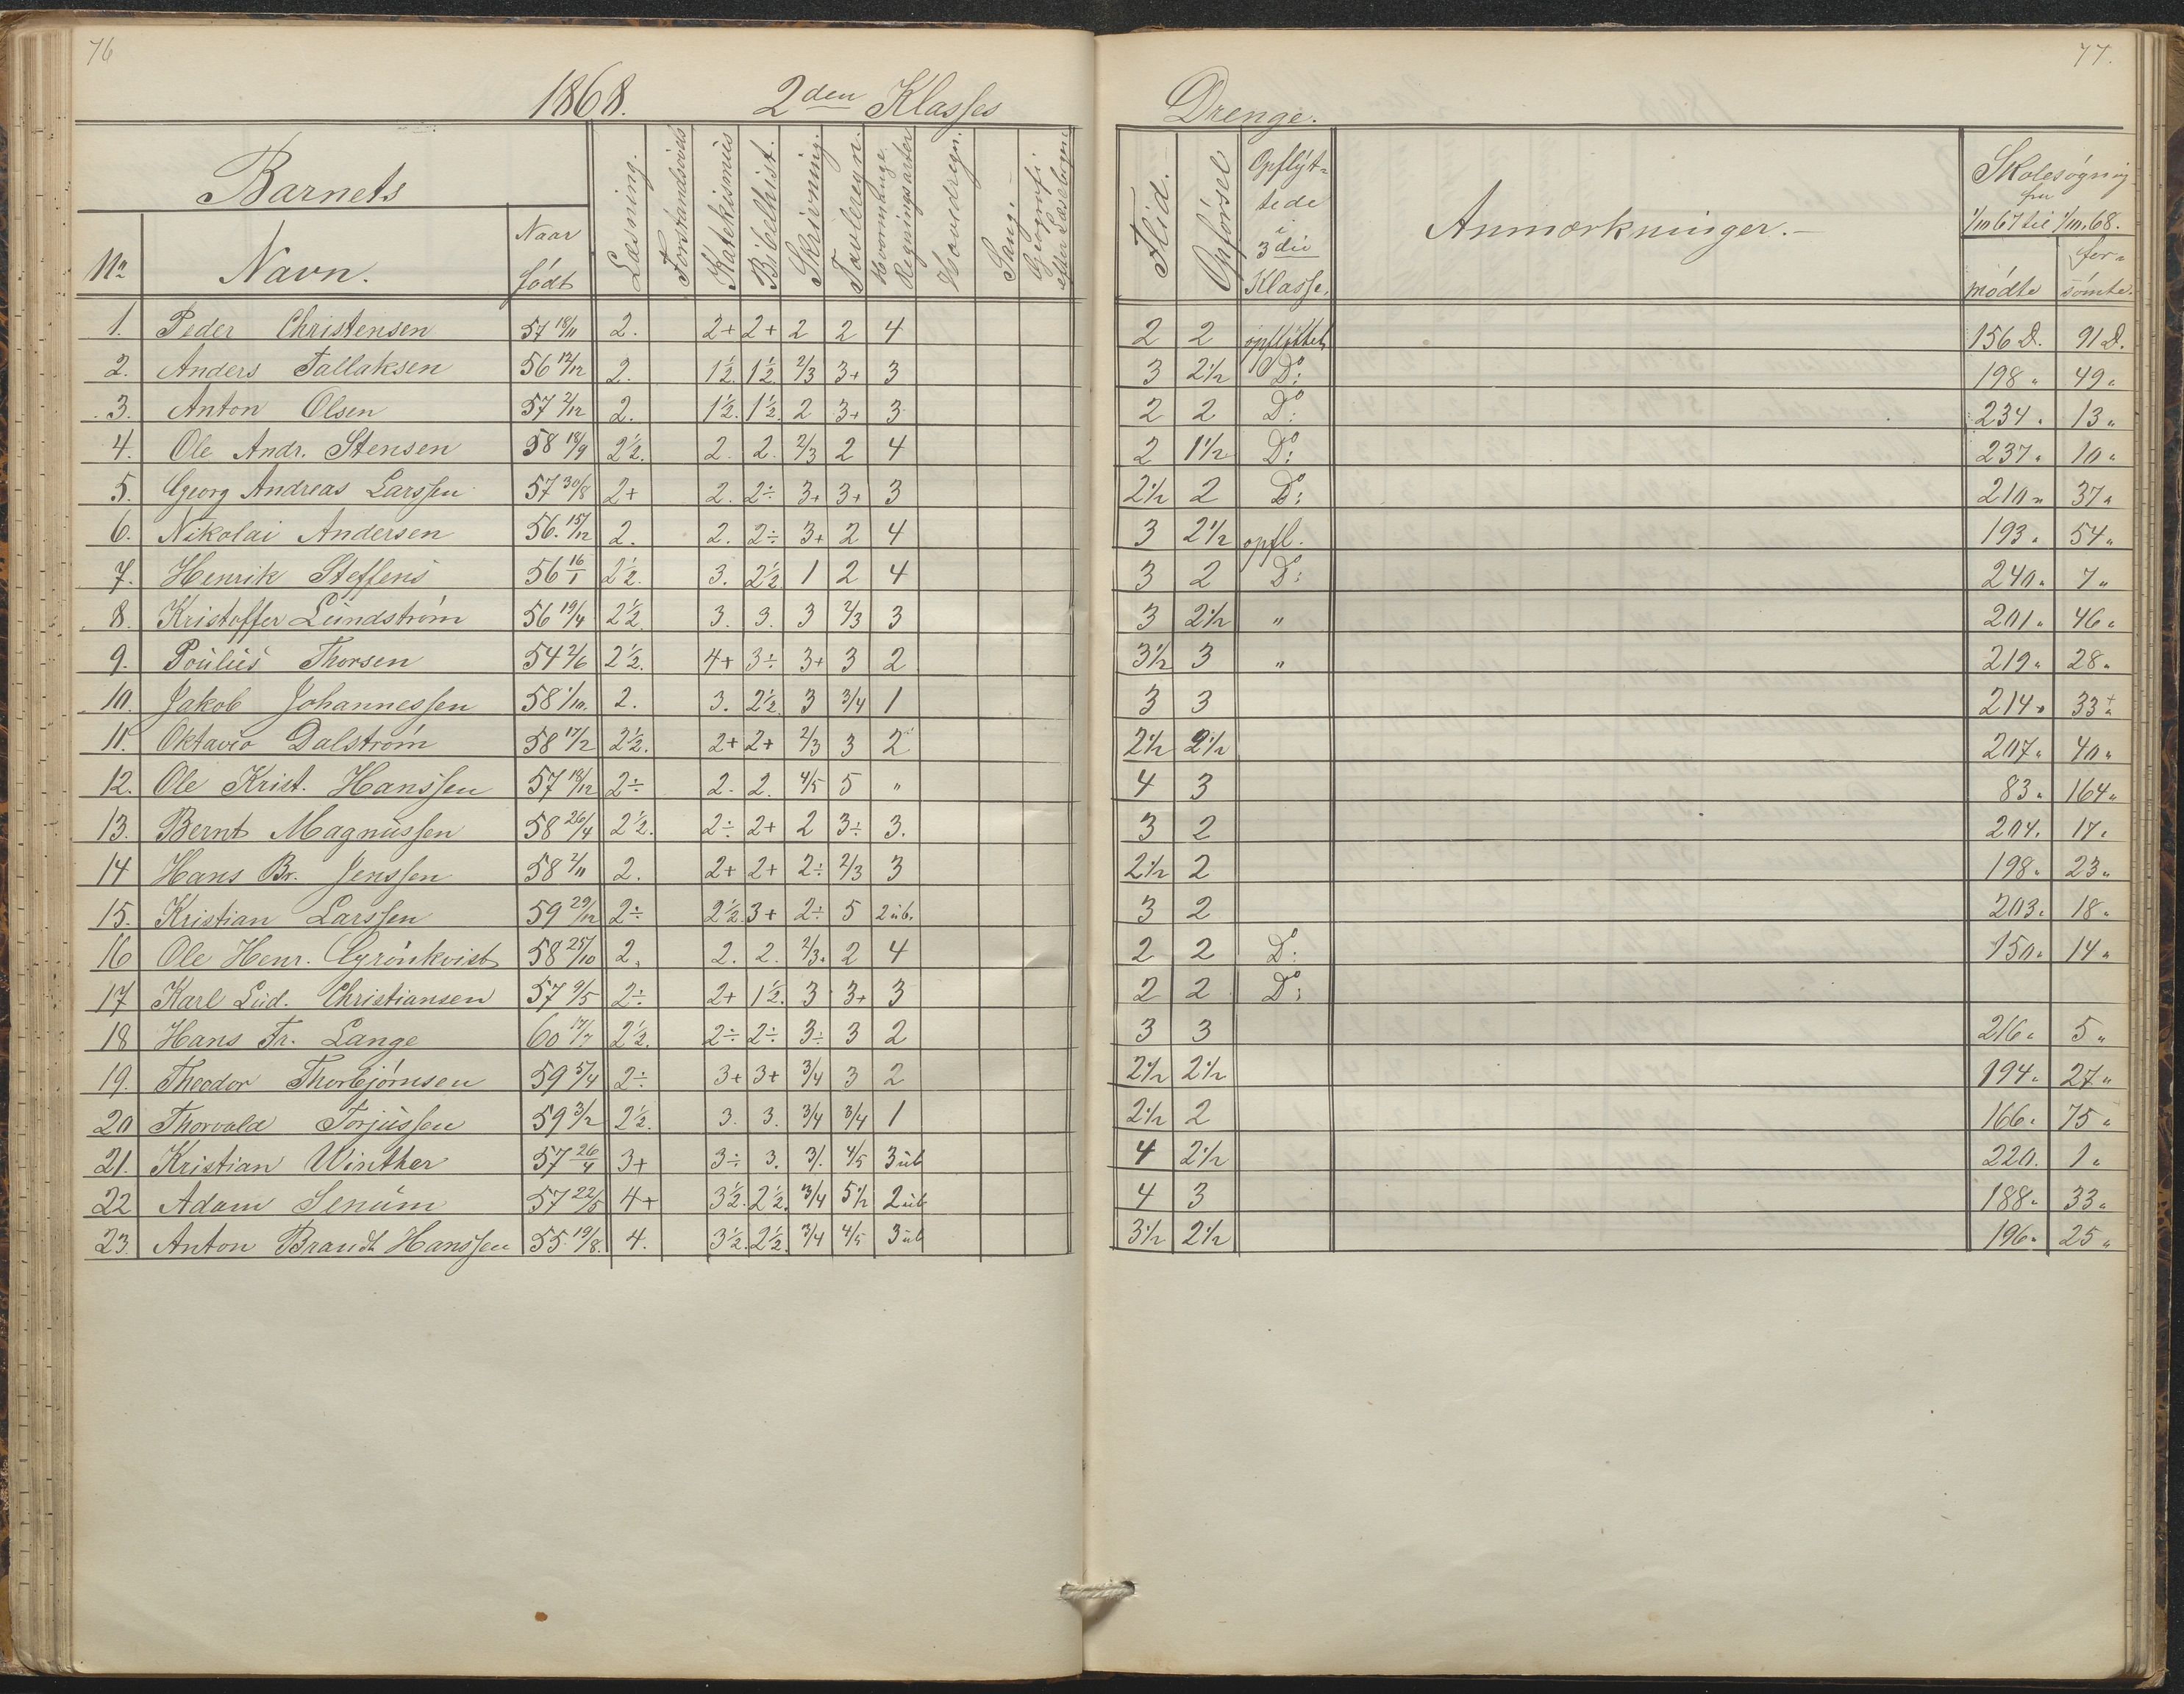 76
77.
1868. 2den Klasses Drenge.
Barnets
No Navn. Naar født Læsning. Forstandsøvels Katekismus Bibelhist. Skrivning. Tavleregn. Hvormange Regningsarter Hovedregn. Sang. Geografi efter Læsebogen Flid. Opførsel Opflyttede i 3die Klasse. Anmærkninger. Skolesøgning fra 1/10 67 til 1/10. 68. mødte forsømte.
1. Peder Christensen 57 18/11 2. 2+ 2+ 2 2 4 2 2 opflyttet 156 D. 91 D.
2. Anders Tallaksen 56 12/12 2. 1½. 1½ 2/3 3+ 3 3 2½ Do: 198 " 49 "
3. Anton Olsen 57 2/12 2. 1½. 1½. 2 3+ 3 2 2 Do: 234 " 13 "
4. Ole Andr. Stensen 58 18/9 2½. 2. 2. 2/3 2 4 2 1½ Do: 237 " 10 "
5. Georg Andreas Larssen 57 30/8 2+ 2. 2÷ 3+ 3+ 3 2½ 2 Do: 210 " 37 "
6. Nikolai Andersen 56. 15/12 2. 2. 2÷ 3+ 2 4 3 2½ opfl. 193 " 54 "
7. Henrik Steffens 56 16/1 2½. 3. 2½ 1 2 4 3 2 Do: 240 " 7 "
8. Kristoffer Lundstrøm 56 19/4 2½ 3. 3. 3 2/3 3 3 2½ " 201 " 46 "
9. Poulus Thorsen 54 2/6 2½. 4+ 3÷ 3+ 3 2 3½ 3 " 219 " 28 "
10. Jakob Johannessen 58 1/10. 2. 3. 2½. 3 3/4 1 3 3 214 " 33 "
11. Oktavio Dalstrøm 58 17/2 2½. 2+ 2+ 2/3 3 2 2½ 2½ 207 " 40 "
12. Ole Krist. Hanssen 57 18/12 2÷ 2. 2. 4/5 5 " 4 3 83 " 164 "
13. Bernt Magnussen 58 26/4 2½. 2÷ 2+ 2 3÷ 3. 3 2 204. 17 "
14 Hans Br. Jenssen 58 2/11 2. 2+ 2+ 2÷ 2/3 3 2½ 2 198 " 23 "
15. Kristian Larssen 59 29/12 2÷ 2½. 3+ 2÷ 5 2 ub. 3 2 203 " 18 "
16 Ole Henr. Grönkvist 58 25/10 2. 2. 2. 2/3. 2 4 2 2 Do: 150 " 14 "
17 Karl Lud. Christiansen 57 9/5 2÷ 2+ 1½. 3 3+ 3 2 2 Do:
18 Hans Fr. Lange 60 17/7 2½. 2÷ 2÷ 3÷ 3 2 3 3 216 " 5 "
19. Theodor Thorbjørnsen 59 5/4 2÷ 3+ 3+ 3/4 3 2 2½ 2½ 194 " 27 "
20 Thorvald Torjussen 59 3/2 2½. 3. 3. 3/4 3/4 1 2½ 2 166 " 75 "
21. Kristian Winther 57 26/4 3+ 3÷ 3. 3/. 4/5 3 ub 4 2½ 220. 1 "
22 Adam Senum 57 22/5 4+ 3½. 2½. 3/4 5½ 2 ub 4 3 188 " 33 "
23. Anton Brandt Hanssen 55. 19/8. 4. 3½. 2½. 3/4 4/5 3 ub 3½ 2½ 196 " 25 "